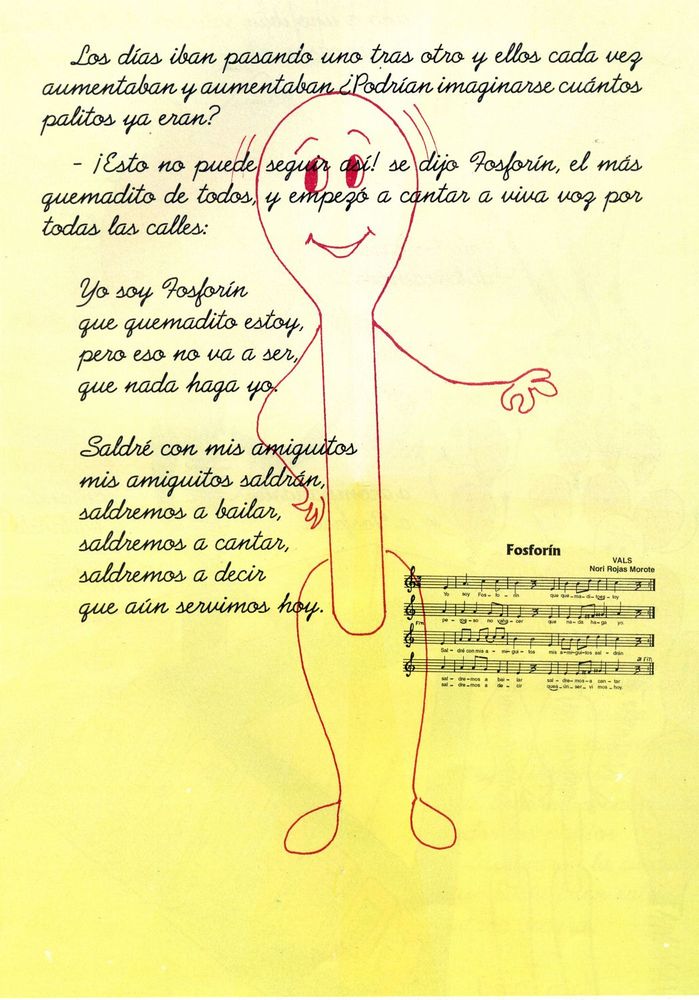 Los días iban pasando uno tras otro y ellos cada vez
aumentaban y aumentaban ¿Podrían imaginarse cuántos
palitos ya eran?
- ¡Esto no puede seguir así! se dijo Fosforín, el más
quemadito de todos, y empezó a cantar a viva voz por
todas las calles:
Yo soy Fosforín
que quemadito estoy,
pero eso no va a ser,
que nada haga yo.
Saldré con mis amiguitos
mis amiguitos saldrán,
saldremos a bailar,
saldremos a cantar,
saldremos a decir
que aún servimos hoy.
Fosforín
VALS
Nori Rojas Morote
Yo soy Fos - fo - rín que que - ma - di - toes - toy
que na - da ha - ga yo.
Sal - dré con mis a - mi - gui - tos mis a - mi - gui - tos sal - drán
sal - dre - mos - a bai - lar sal - dre - mos - a can - tar
sal - dre - mos - a de - cir quea - ún - ser - vi mos - hoy.